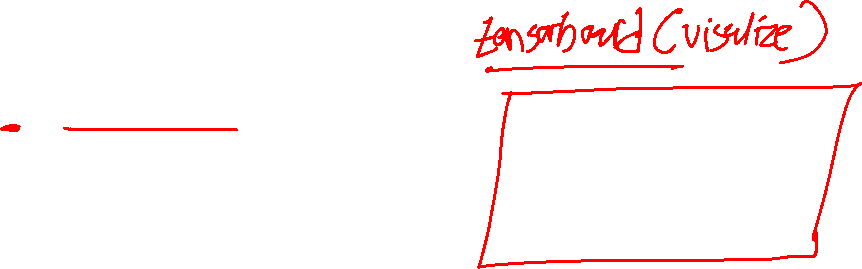 tensorboard (visulize)